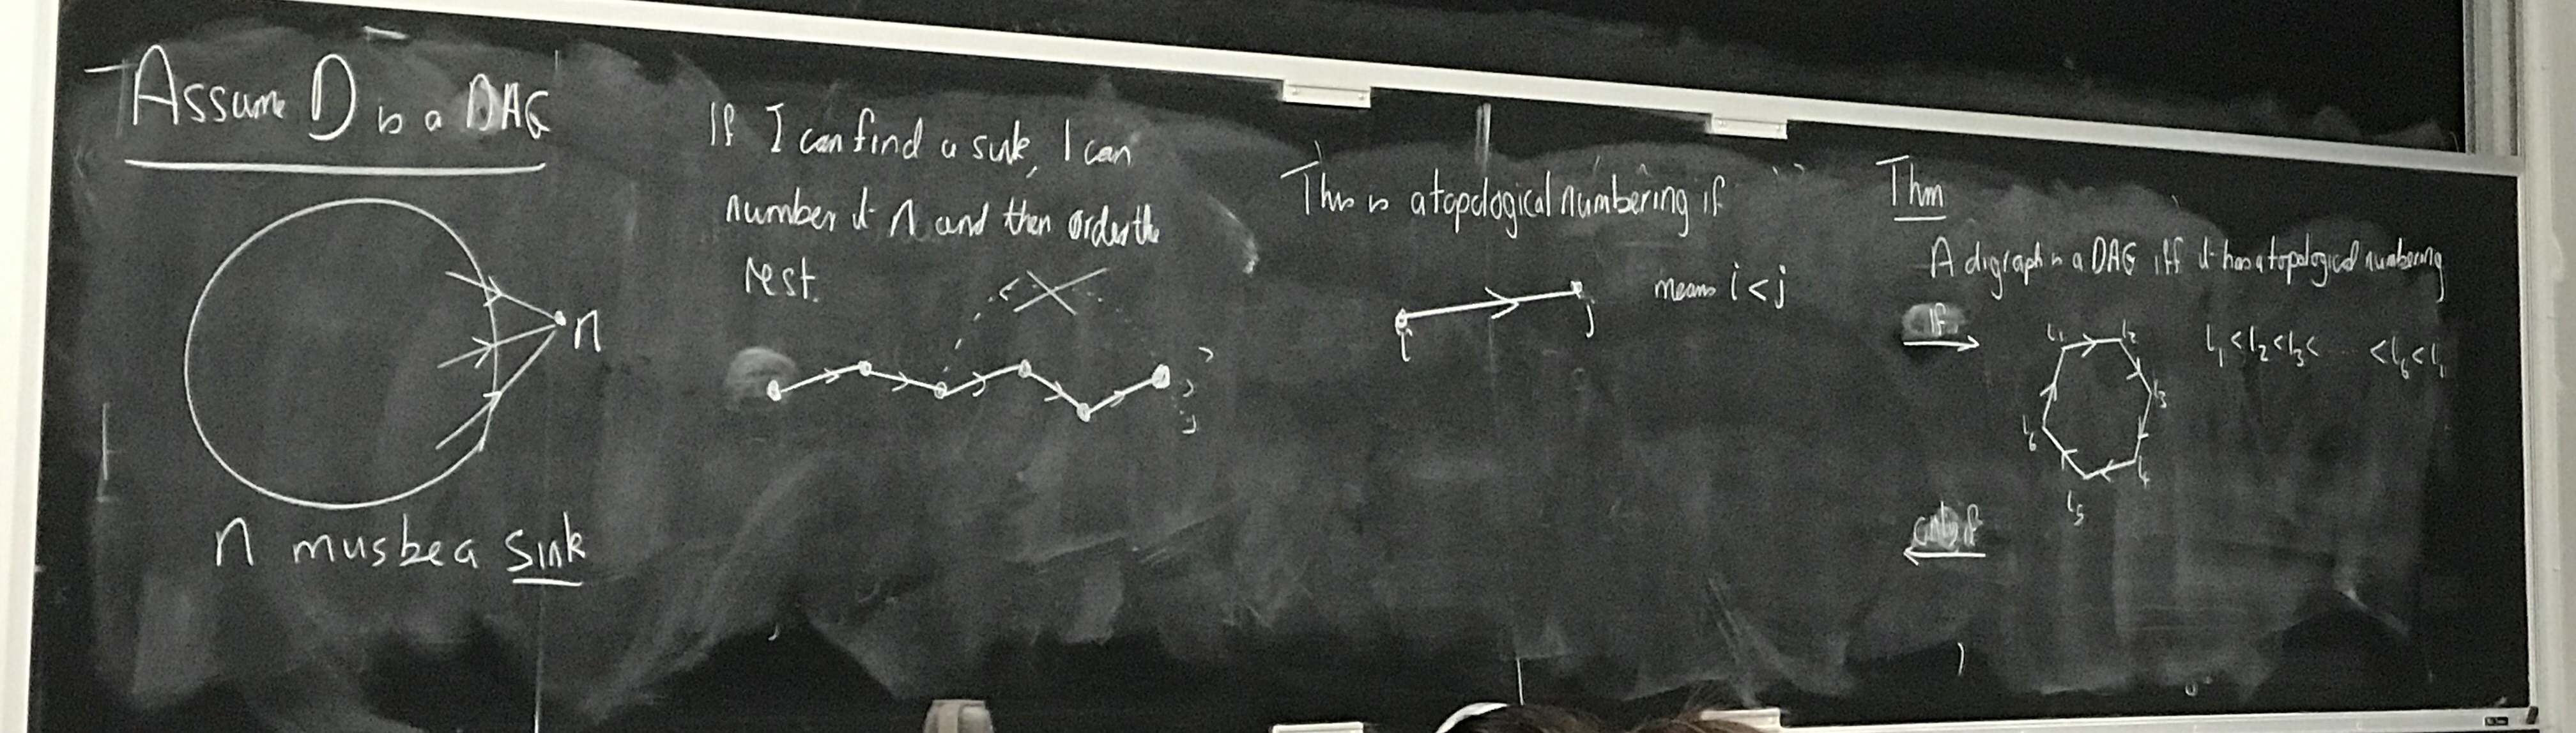 Assume D is a DAG
n
n mus be a sink
If I can find a sink, I can
number it n and then order the
rest.
This is a topological numbering if
i
j
means i < j
Thm
A digraph is a DAG iff it has a topological numbering
if
i₁
i₂
i₃
i₄
i₅
i₆
i₁ < i₂ < i₃ < ... < i₆ < i₁
only if